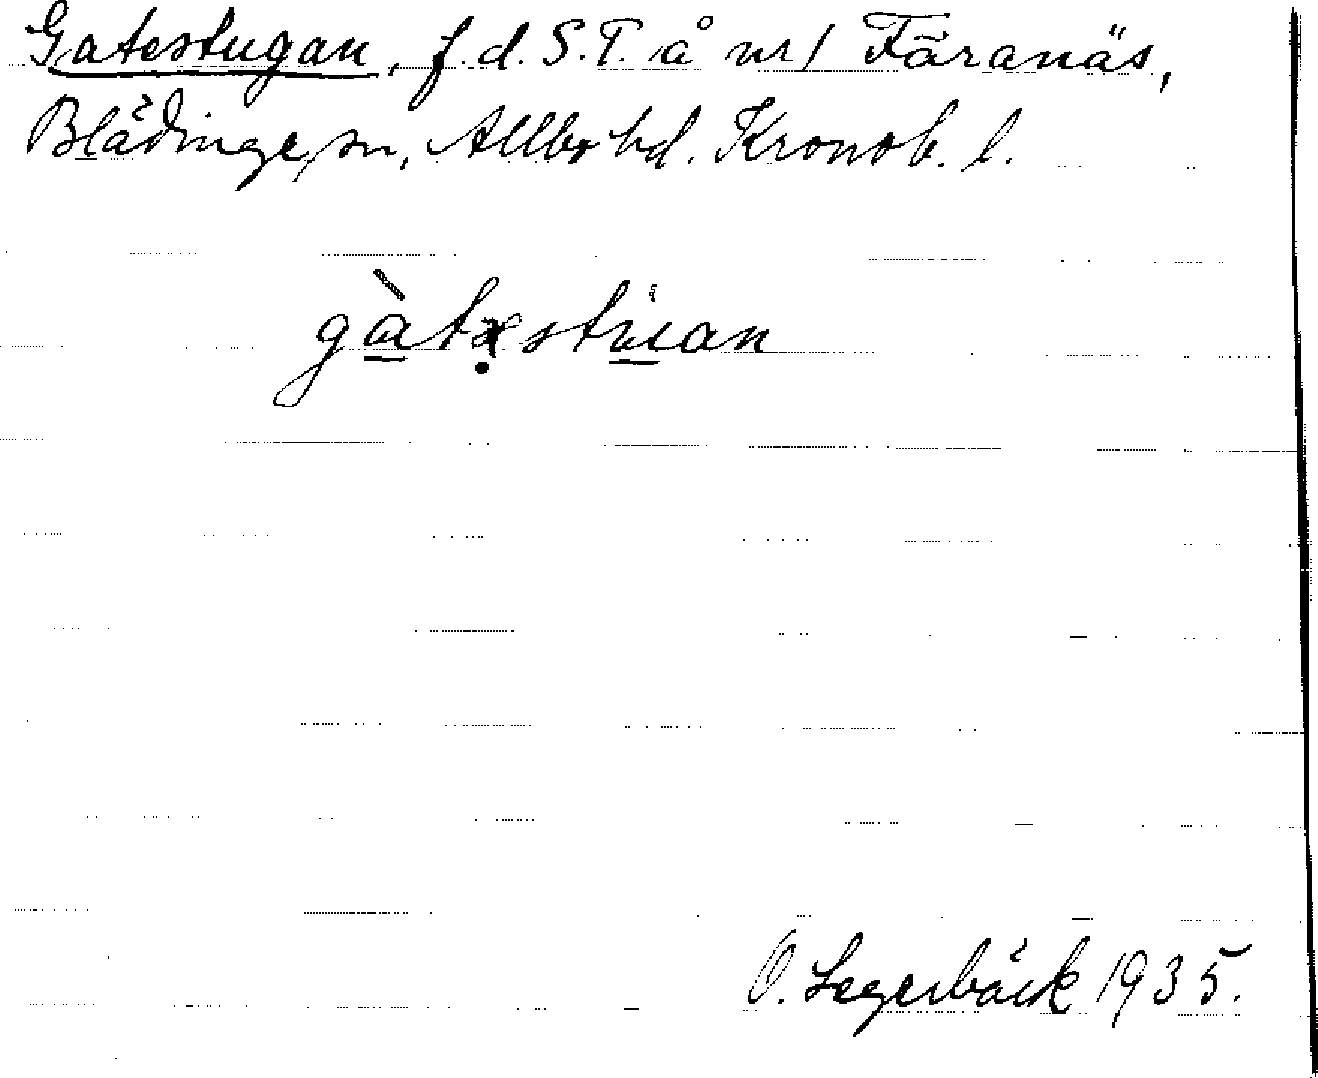 Gatestugan, f.d. S.T. å nr 1 Färanäs,
Blädinge sn, Allbo hd. Kronob. l.
gàtəstuan
O. Lagerbäck 1935.